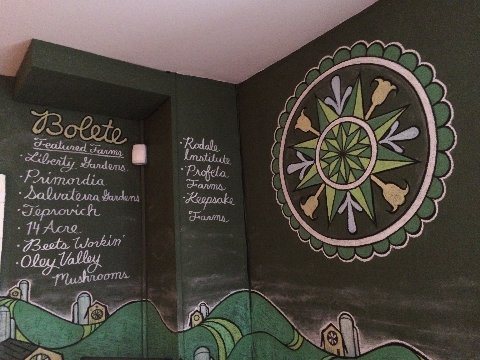 Bolete
Featured Farms
• Liberty Gardens
• Primordia
• Salvaterra Gardens
• Teprovich
• 14 Acre
• Beets Workin'
• Oley Valley
Mushrooms
• Rodale
Institute
• Profeta
Farms
• Keepsake
Farms